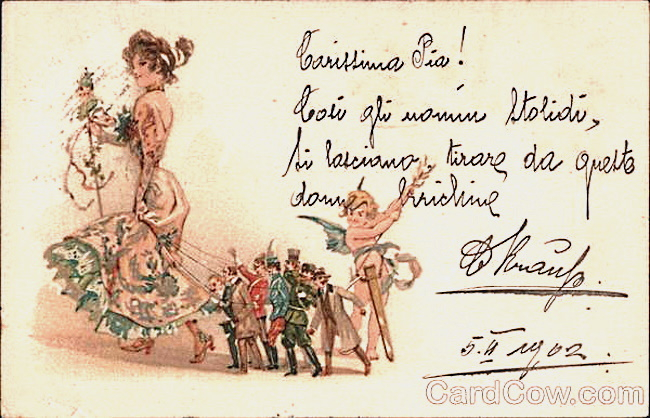 Carissima Pia!
Così gli uomini stolidi,
si lasciano tirare da queste
donne
Krauss.
5.II 1902.
CardCow.com